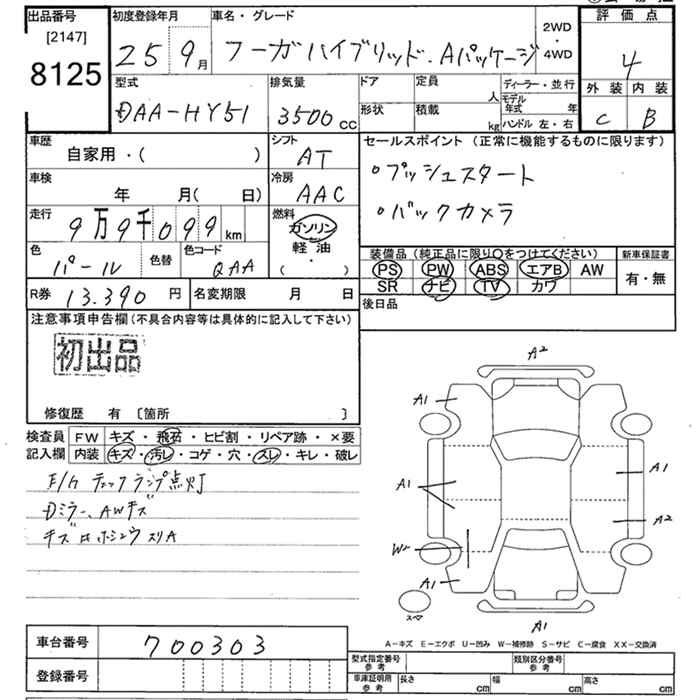 出品番号
[2147]
8125
初度登録年月
25 9月
車名・グレード
フーガハイブリッド.Aパッケージ
2WD
・
4WD
評価点
4
外装 内装
C B
型式
DAA-HY51
排気量
3500cc
ドア
定員
人
形状
積載
kg
ディーラー・並行
モデル年式 年
ハンドル 左・右
車歴
自家用・( )
シフト
AT
車検
年 月( 日)
冷房
AAC
走行
9万9千099km
燃料
ガソリン
軽油
( ・ )
色
パール
色替
色コード
QAA
R券 13.390円
名変期限 月 日
セールスポイント(正常に機能するものに限ります)
・プッシュスタート
・バックカメラ
装備品(純正品に限り○をつけてください)
PS PW ABS エアB AW
SR ナビ TV カワ
新車保証書
有・無
後日品
注意事項申告欄(不具合内容等は具体的に記入して下さい)
初出品
修復歴 有 〔箇所 〕
検査員記入欄
FW キズ・飛石・ヒビ割・リペア跡・×要
内装 キズ・汚レ・コゲ・穴・スレ・キレ・破レ
E/Gチェックランプ点灯
Dミラー、AWキズ
キズ ホシュウスリA
A2
A1
A1
A1
A2
W
A1
スペア
A1
A-キズ E-エクボ U-凹み W-補修跡 S-サビ C-腐食 XX-交換済
車台番号 700303
登録番号
型式指定番号 参考
類別区分番号 参考
車庫証明用 参考
長さ cm 幅 cm 高さ cm